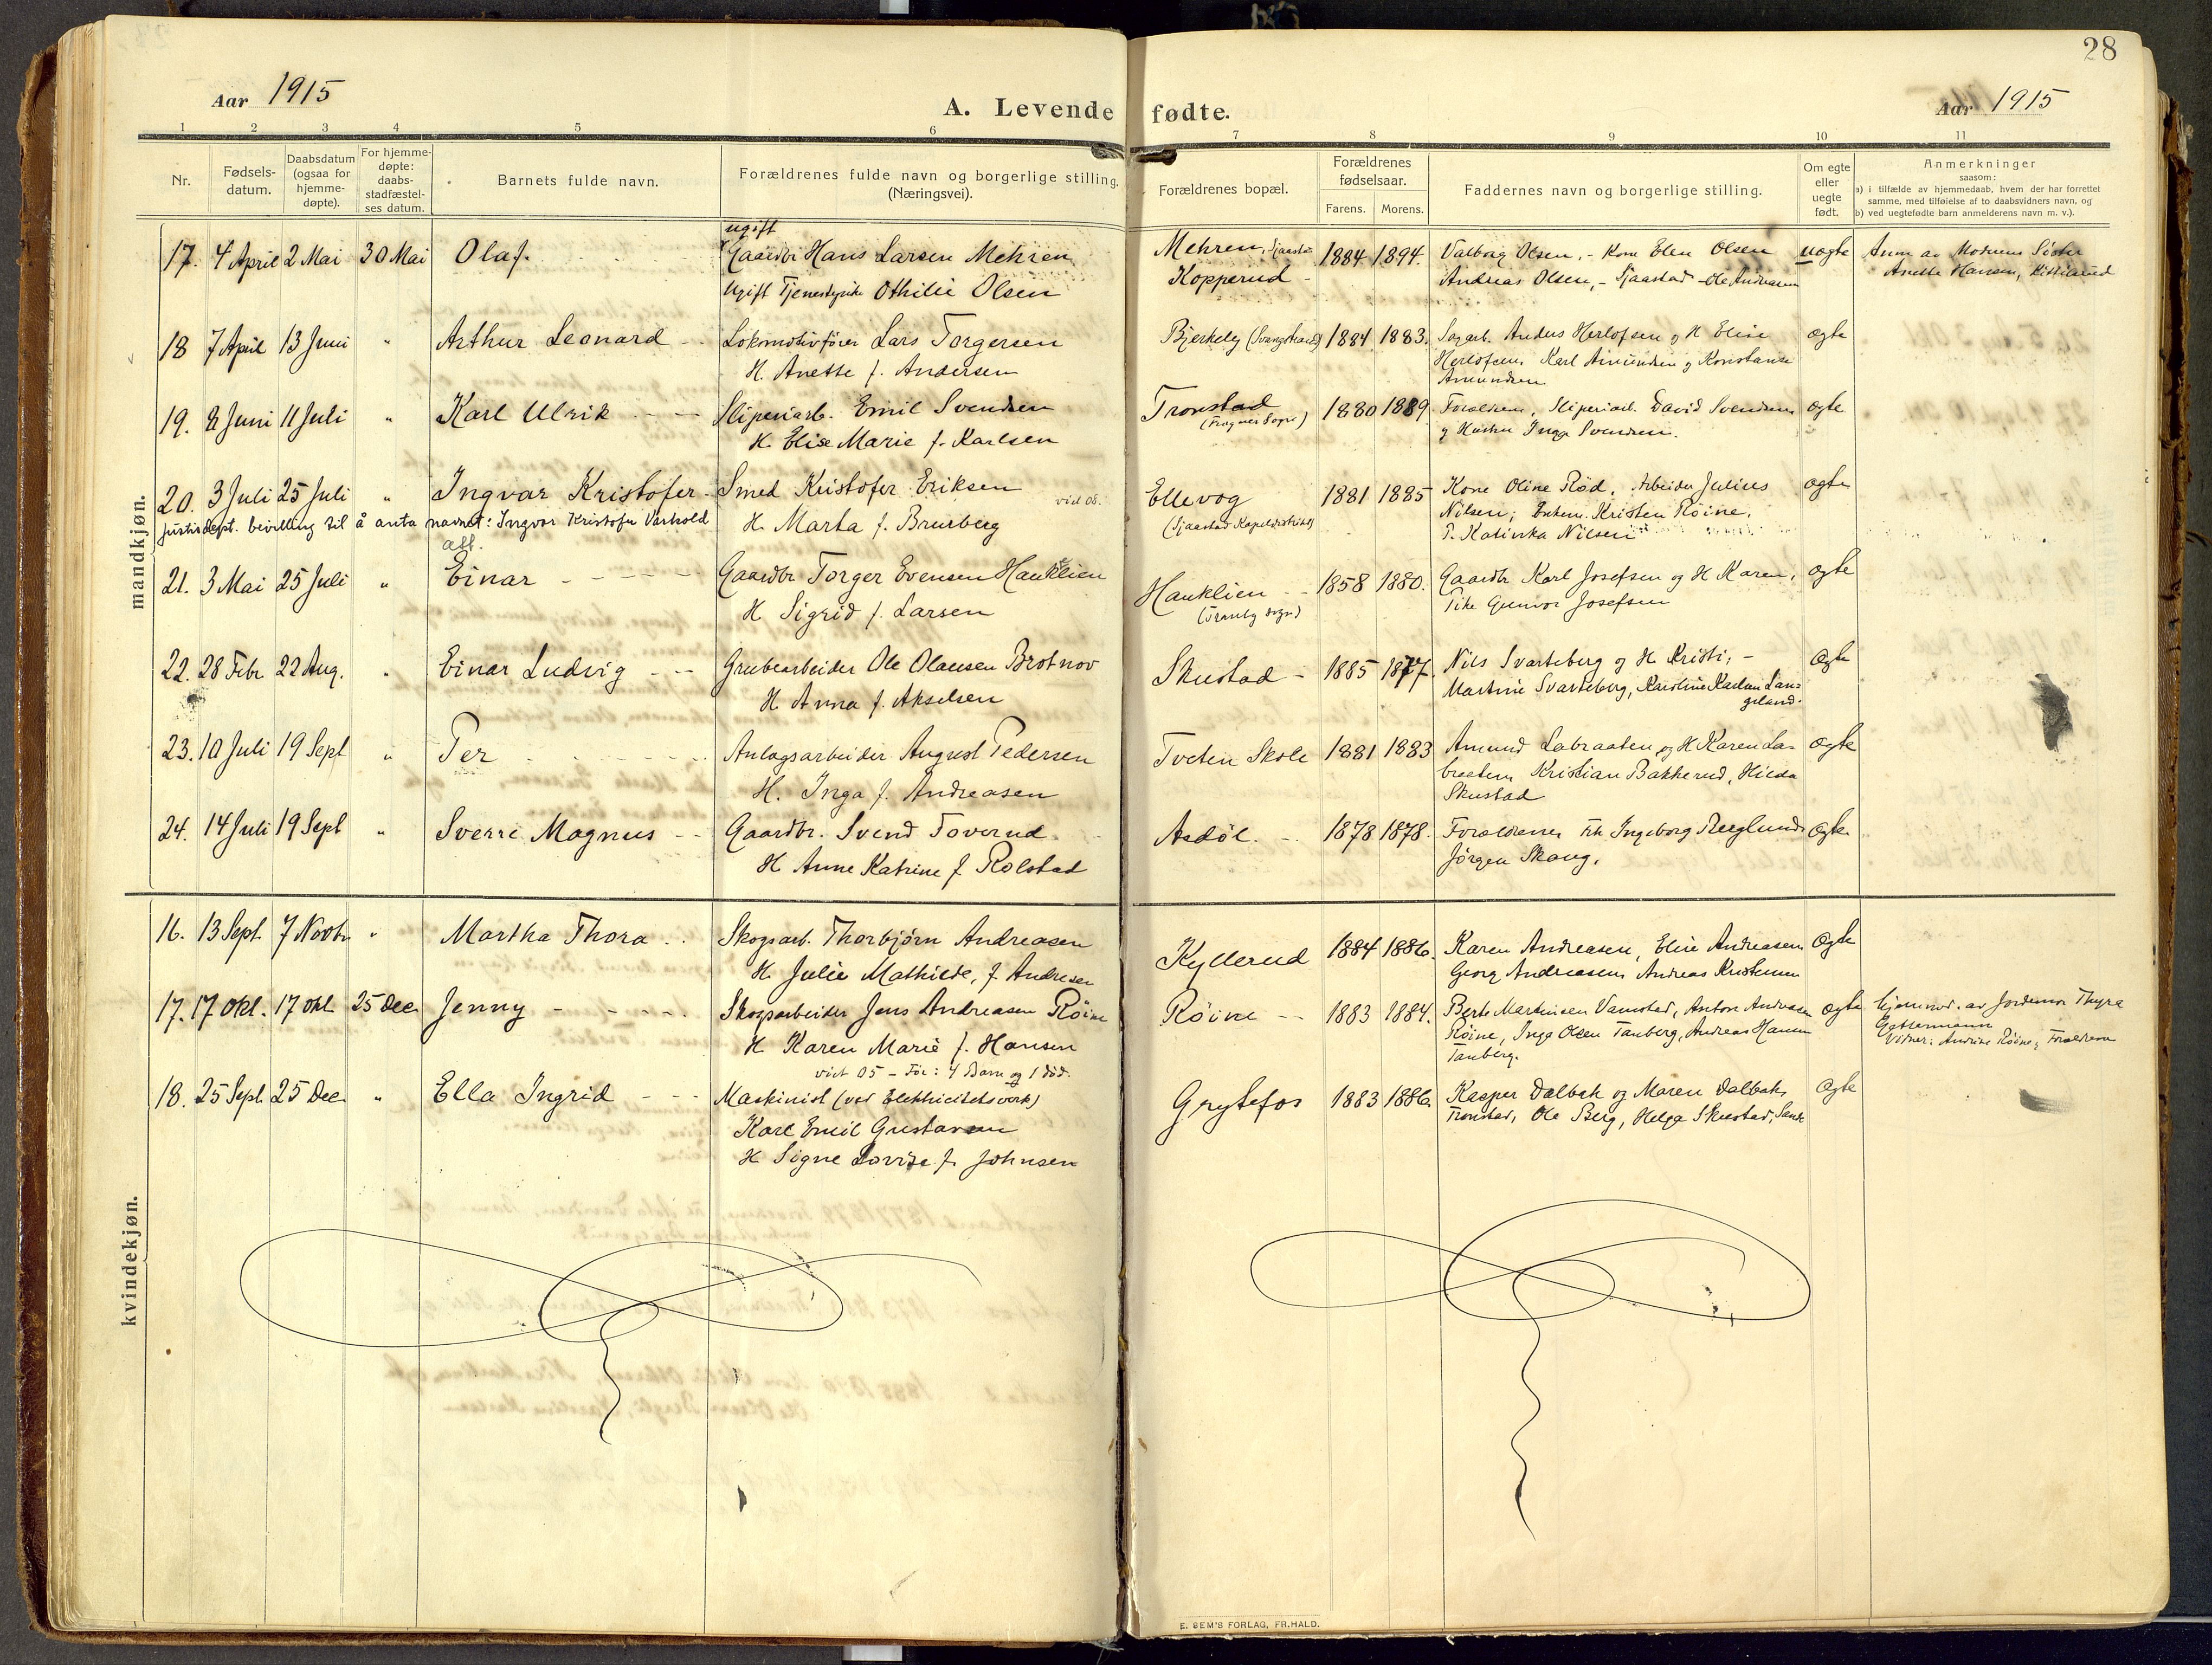 28
Aar 1915
A. Levende fødte.
Aar 1915
1 2 3 4 5 6 7 8 9 10 11
Nr.
Fødsels-
datum.
Daabsdatum
(ogsaa for
hjemme-
døpte).
For hjemme-
døpte:
daabs-
stadfæstel-
ses datum.
Barnets fulde navn.
Forældrenes fulde navn og borgerlige stilling.
(Næringsvei).
Forældrenes bopæl.
Forældrenes
fødselsaar.
Farens. Morens.
Faddernes navn og borgerlige stilling.
Om egte
eller
uegte
født.
Anmerkninger
saasom:
a) i tilfælde av hjemmedaab, hvem der har forrettet
samme, med tilføielse af to daabsvidners navn, og
b) ved uegtefødte barn anmelderens navn m. v.).
mandkjøn.
17. 4 April 2 Mai 30 Mai Olaf.
ugift
Gaardbr Hans Larsen Mehren
Ugift Tjenestepike Othilie Olsen
Mehren, Sjaastad
Kopperud
1884 1894.
Valborg Olsen, - Kone Elen Olsen
Andreas Olsen, - Sjaastad - Ole Andreasen
uægte
Anm av Moderens Søster
Anette Hansen,
18 7 April 13 Juni " Arthur Leonard
Lokomotivfører Lars Torgersen
H. Anette f. Andersen
Bjerkely (Svangstrand)
1884. 1883.
Sagarb. Anders Herlofsen og H Elise
Herlofsen, Karl Amundsen og Konstanse
Amundsen
ægte
19. 8 Juni 11 Juli " Karl Ulrik
Sliperiarb. Emil Svendsen
H. Elise Marie f. Karlsen
Tronstad
(Frogner Sogn)
1880 1889
Forældrene, Sliperiarb. David Svendsen
og Hustru Inga Svendsen.
ægte
20. 3 Juli 25 Juli " Ingvar Kristofer
Smed Kristofer Eriksen
viet 08.
H. Marta f. Brurberg
Justisdept. bevilling til å anta navnet: Ingvar Kristofer Varhold
att.
Ellevog
(Sjaastad Kapeldistrikt)
1881 1885
Kone Oline Rød, Arbeider Julius
Nilsen; Enkem. Kristen Røine,
P. Katinka Nilsen
ægte
21. 3 Mai 25 Juli " Einar
Gaardbr Torger Evensen Hauklien
H Sigrid f. Larsen
Hauklien
(Tranby sogn)
1858 1880.
Gaardbr Karl Josefsen og H Karen,
Pike Gunvor Josefsen
ægte
22. 28 Febr 22 Aug. " Einar Ludvig
Grubearbeider Ole Olausen Brotnov
H. Anna f. Akselsen
Skustad
1885 1877.
Nils Svarteberg og H Kristi, -
Martine Svarteberg, Karoline Karlsen Lan-
geland.
Ægte
23. 10 Juli 19 Sept " Per
Anlægsarbeider August Pedersen
H. Inga f. Andreasen
Tveten Skole
1881 1883
Amund Labraaten og H Karen La-
braaten Kristian Bakkerud, Hilda
Skustad
ægte
24. 14 Juli 19 Sept " Sverre Magnus
Gaardbr. Svend Toverud
H Anne Katrine f Rolstad
Asdøl.
1878 1878.
Forældrene Frk Ingeborg
Jørgen Skaug.
Ægte
kvindekjøn.
16. 13 Sept 7 Novbr " Martha Thora
Skogsarb. Thorbjørn Andreasen
H. Julie Mathilde, f Andresen
Kyllerud
1884 1886.
Karen Andreasen, Elise Andreasen
Georg Andreasen, Andreas Kristensen
Ægte
17. 17 Okt. 17 Okt 25 Dec Jenny
Skogsarbeider Jens Andreasen Røine
H Karen Marie f. Hansen
Røine
1883 1884.
Berte Martinsen Vamstad, Anton Andreasen
Røine, Inga Olsen Tanberg, Andreas Hansen
Tanberg.
ægte
Hjemmed. av Jordemor Thyra
Vidner: Andrine Røine, Forældrene
18. 25 Sept 25 Dec " Ella Ingrid
viet 05 - Før: 4 Barn og 1 død.
Maskinist (ved Elektricitetsverk)
Karl Emil Gustavsen
H Signe Lovise f. Johnsen
Grytefos
1883 1886
Kasper Dalbak og Maren Dalbak,
Tronstad, Ole Berg, Helga Skustad, Sande
Ægte
E. SEM'S FORLAG, FR.HALD.